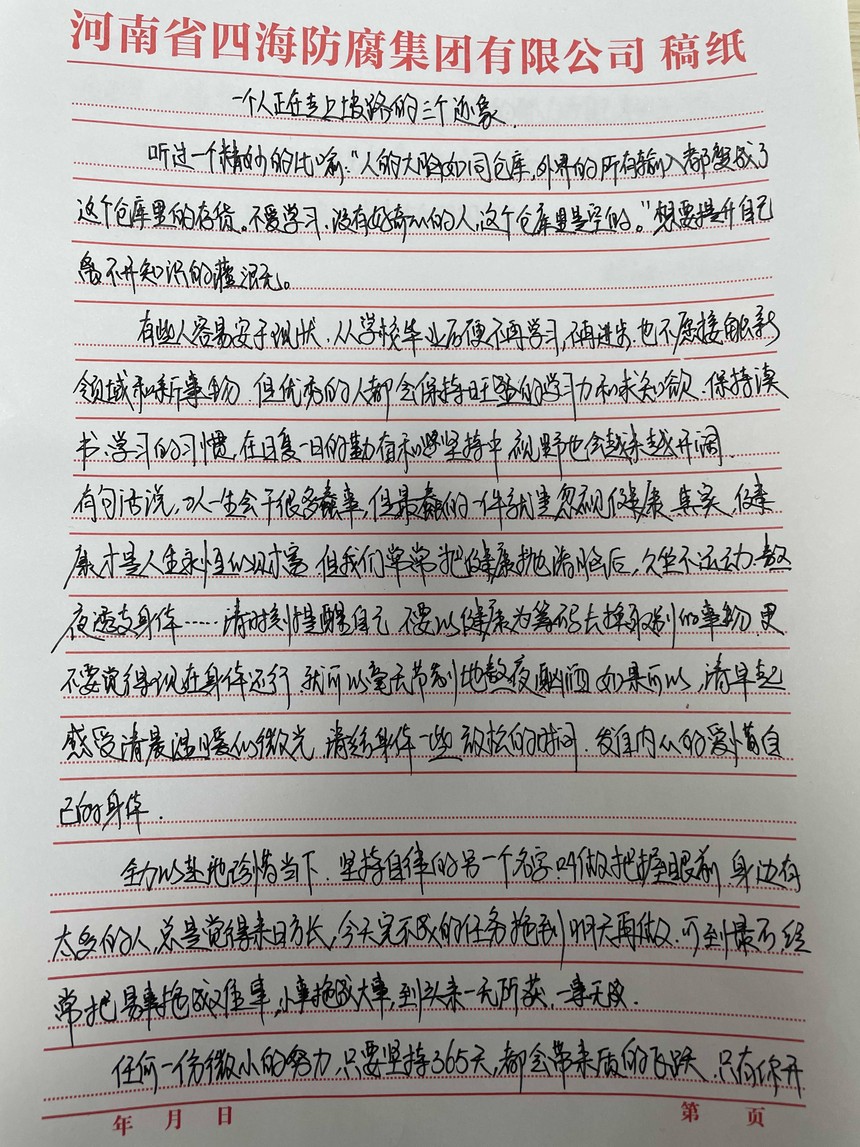 河南省四海防腐集团有限公司 稿纸
一个人正在走上坡路的三个迹象.
听过一个精妙的比喻:"人的大脑如同仓库,外界的所有输入都变成了
这个仓库里的存货。不爱学习、没有好奇心的人,这个仓库里是空的。"想要提升自己
离不开知识的灌溉。
有些人容易安于现状、从学校毕业后便不再学习,不再进步.也不愿接触新
领域和新事物.但优秀的人都会保持旺盛的学习力和求知欲、保持读
书、学习的习惯,在日复一日的勤奋和坚持中 视野也会越来越开阔.
有句话说,人一生会干很多蠢事,但最蠢的一件就是忽视健康 其实,健
康才是人生永恒的财富 但我们常常把健康抛诸脑后,久坐不运动.熬
夜透支身体……请时刻提醒自己 不要以健康为筹码去换取别的事物.更
不要觉得现在身体还行 就可以毫无节制地熬夜酗酒 如果可以,请早起
感受清晨温暖的微光 请给身体一些放松的时间.发自内心的爱惜自
己的身体.
全力以赴地珍惜当下.坚持自律的另一个名字叫做把握眼前 身边有
太多的人,总是觉得来日方长,今天完不成的任务拖到明天再做.可到最后 经
常把易事拖成难事,小事拖成大事,到头来一无所获.一事无成.
任何一份微小的努力,只要坚持365天,都会带来质的飞跃.只有你开
年 月 日
第 页